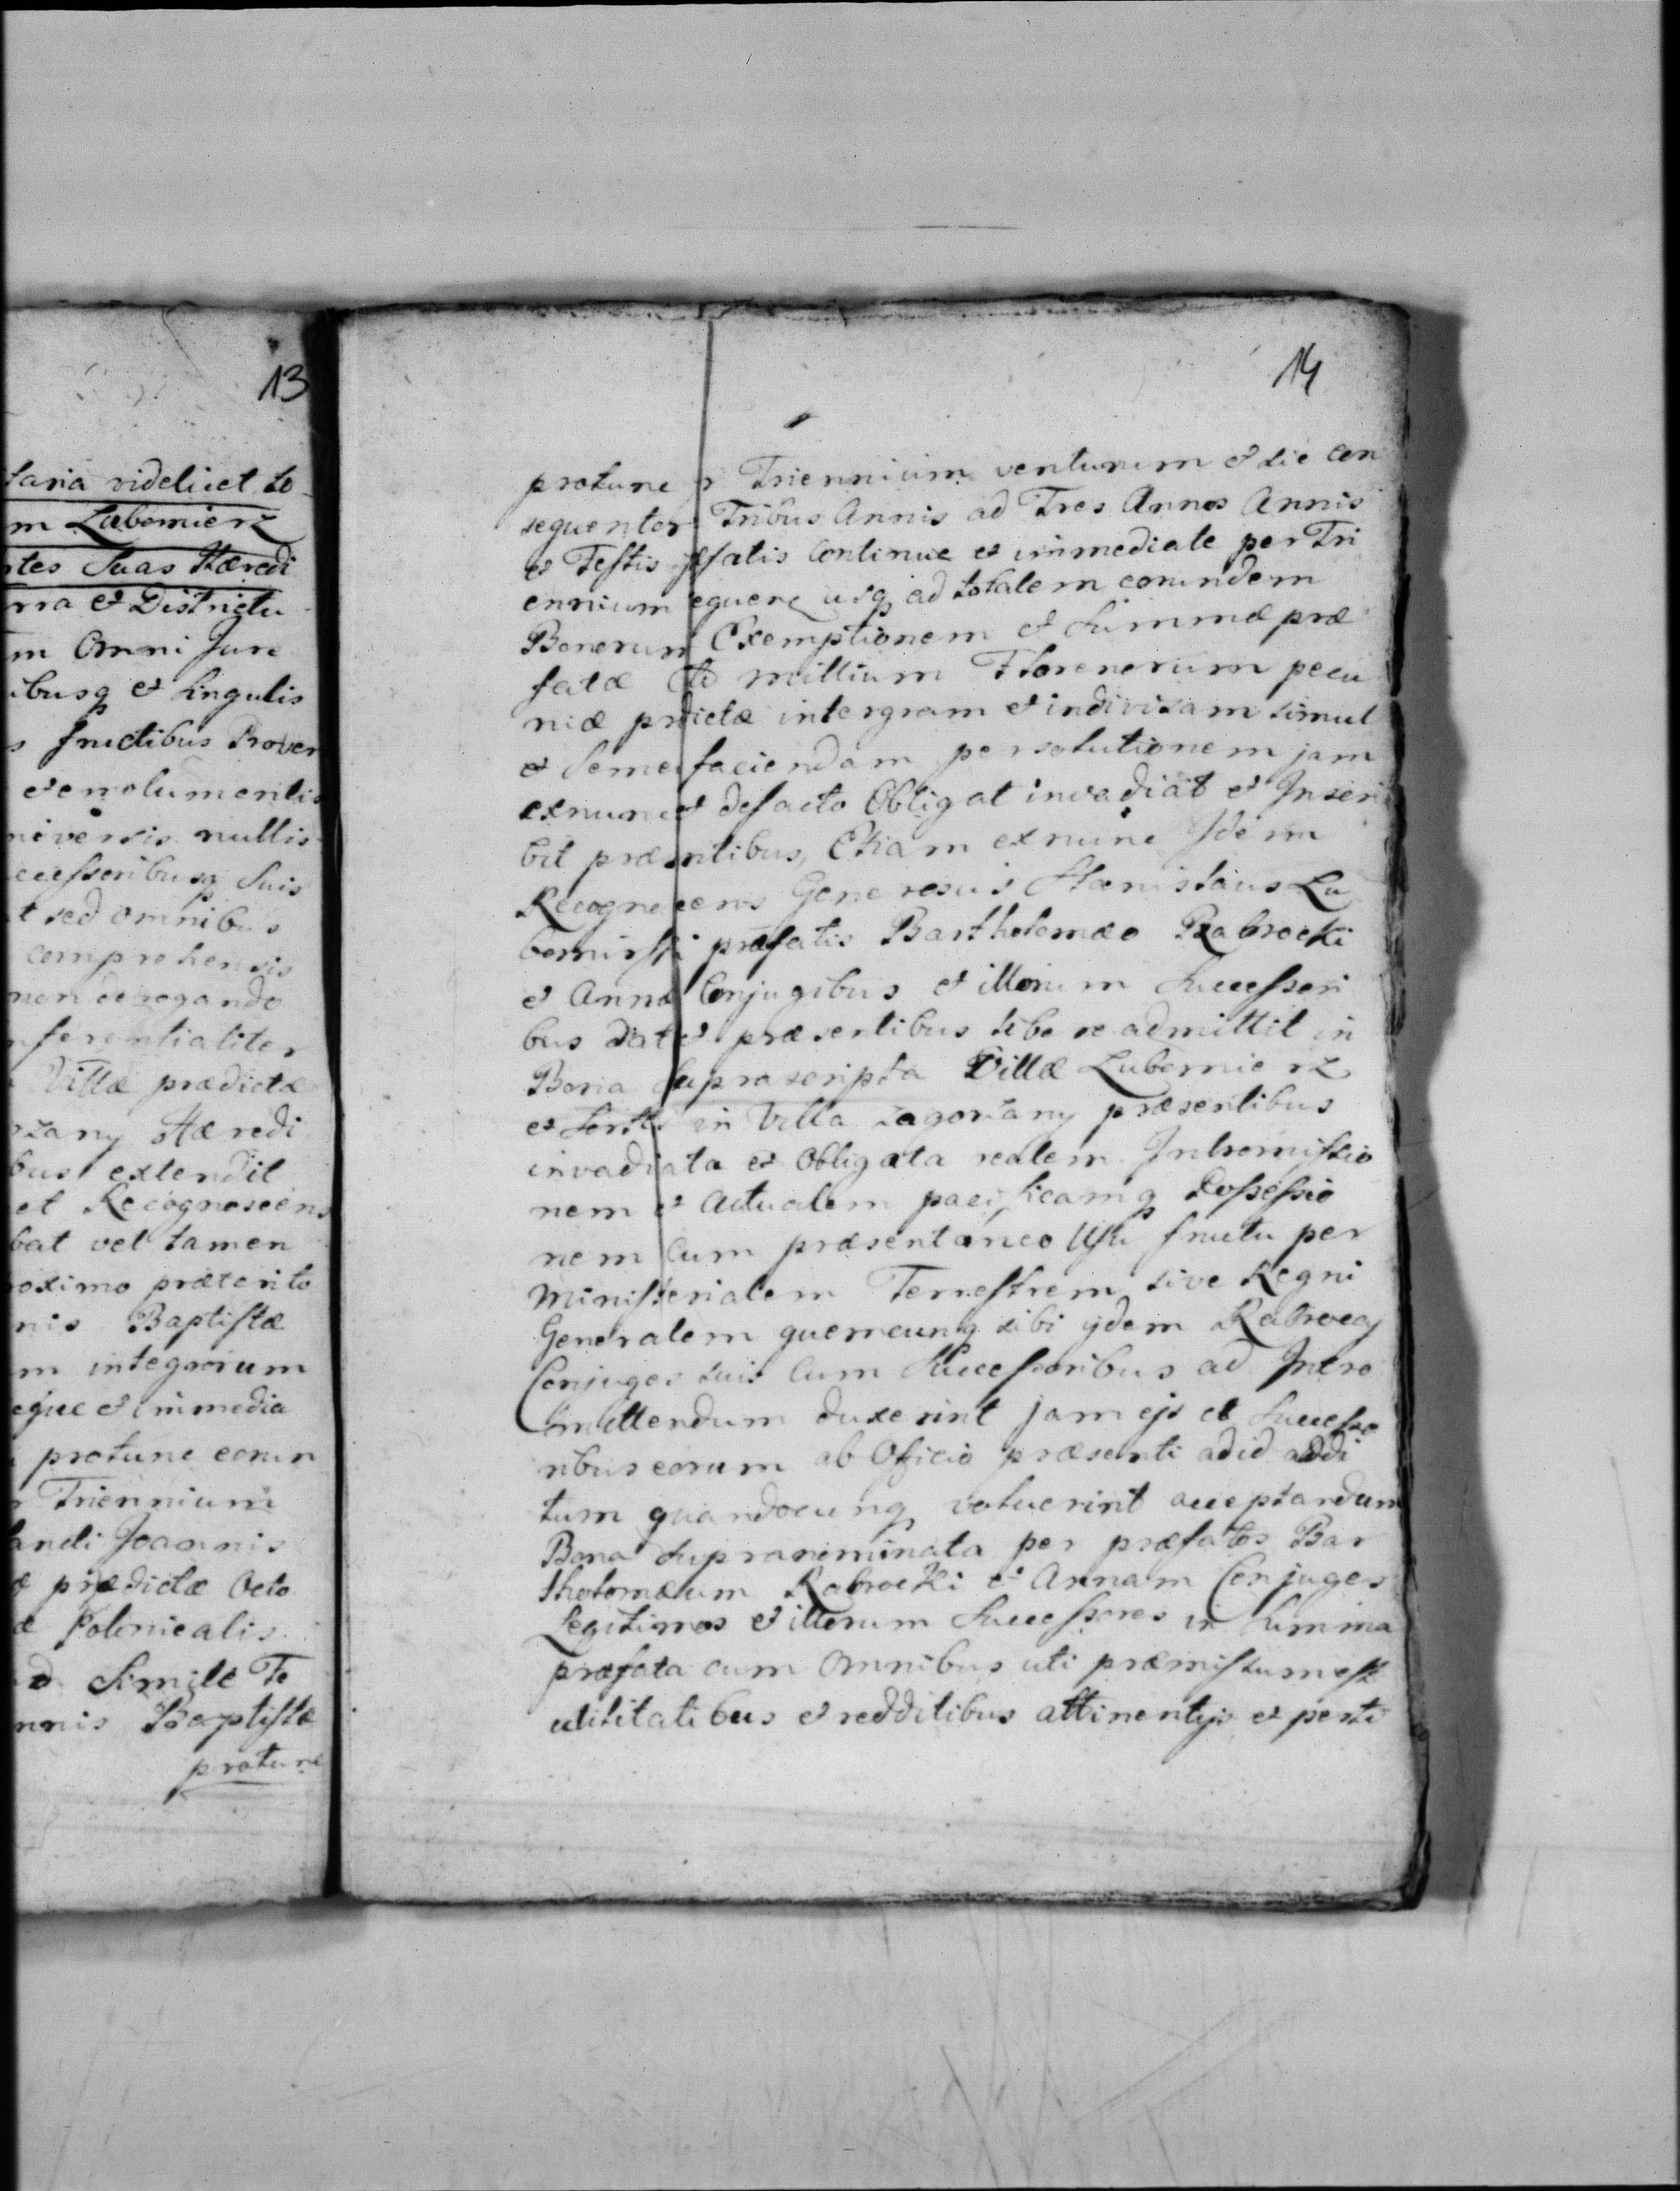 13
taria videlicet to
m Lubomierz
rtes Suas Hæredi
rra et Districtu
m Omni Jure
ibusq et Singulis
s fructibus Proven
et emolumentis
niversis nullis
ccessoribusq Suis
t sed omnibus
comprehensis
non derogando
nferentialiter
Villæ prædictæ
rzany Hæredi
bus extendit
et Recognoscens
bat vel tamen
roximo præterito
nis Baptistæ
m integrorum
eque et immedia
protunc eorun
r Triennium
ancti Joannis
æ prædictæ Octo
æ Polonicalis
d Simile Fe
nnis Baptistæ
protunc
14
protunc r Triennium venturum et sic con
sequenter Tribus Annis ad Tres Annos Annis
et Festis pfatis Continue et immediate per Tri
ennium equenq usq ad totalem eorundem
Bonorum Exemptionem et Summæ præ
fatæ Octo millium Florenorum pecu
niæ prdictæ intergram et indivisam simul
et Semel faciendam persolutionem jam
exnunc et defacto Obligat invadiat et Inscri
bit præsentibus, Etiam exnunc Idem
Recognoscens Generosus Stanislaus Lu
bomirski præfatis Bartholomæo Rabrocki
et Annæ Conjugibus et illorum Successori
bus dat et præsentibus libere admittit in
Bona Suprascripta Villæ Lubomierz
et Sortis in Villa Zagorzany præsentibus
invadiata et Obligata realem Intromissio
nem et Actualem pacificamq Possessio
nem Cum præsentaneo Usu fructu per
Ministerialem Terrestrem sive Regni
Generalem quemcunq sibi ijdem Rabroccy
Conjuges suis Cum Successoribus ad Intro
mittendum duxerint jam ejs et Successo
ribus eorum ab Officio præsenti ad id addi
tum quandocunq voluerint acceptandum
Bona Supranominata per præfatos Bar
tholomæum Rabrocki et Annam Conjuges
Legitimos et illorum Successores in Summa
præfata cum Omnibus uti præmissum est
utilitatibus et redditibus attinentijs et perti